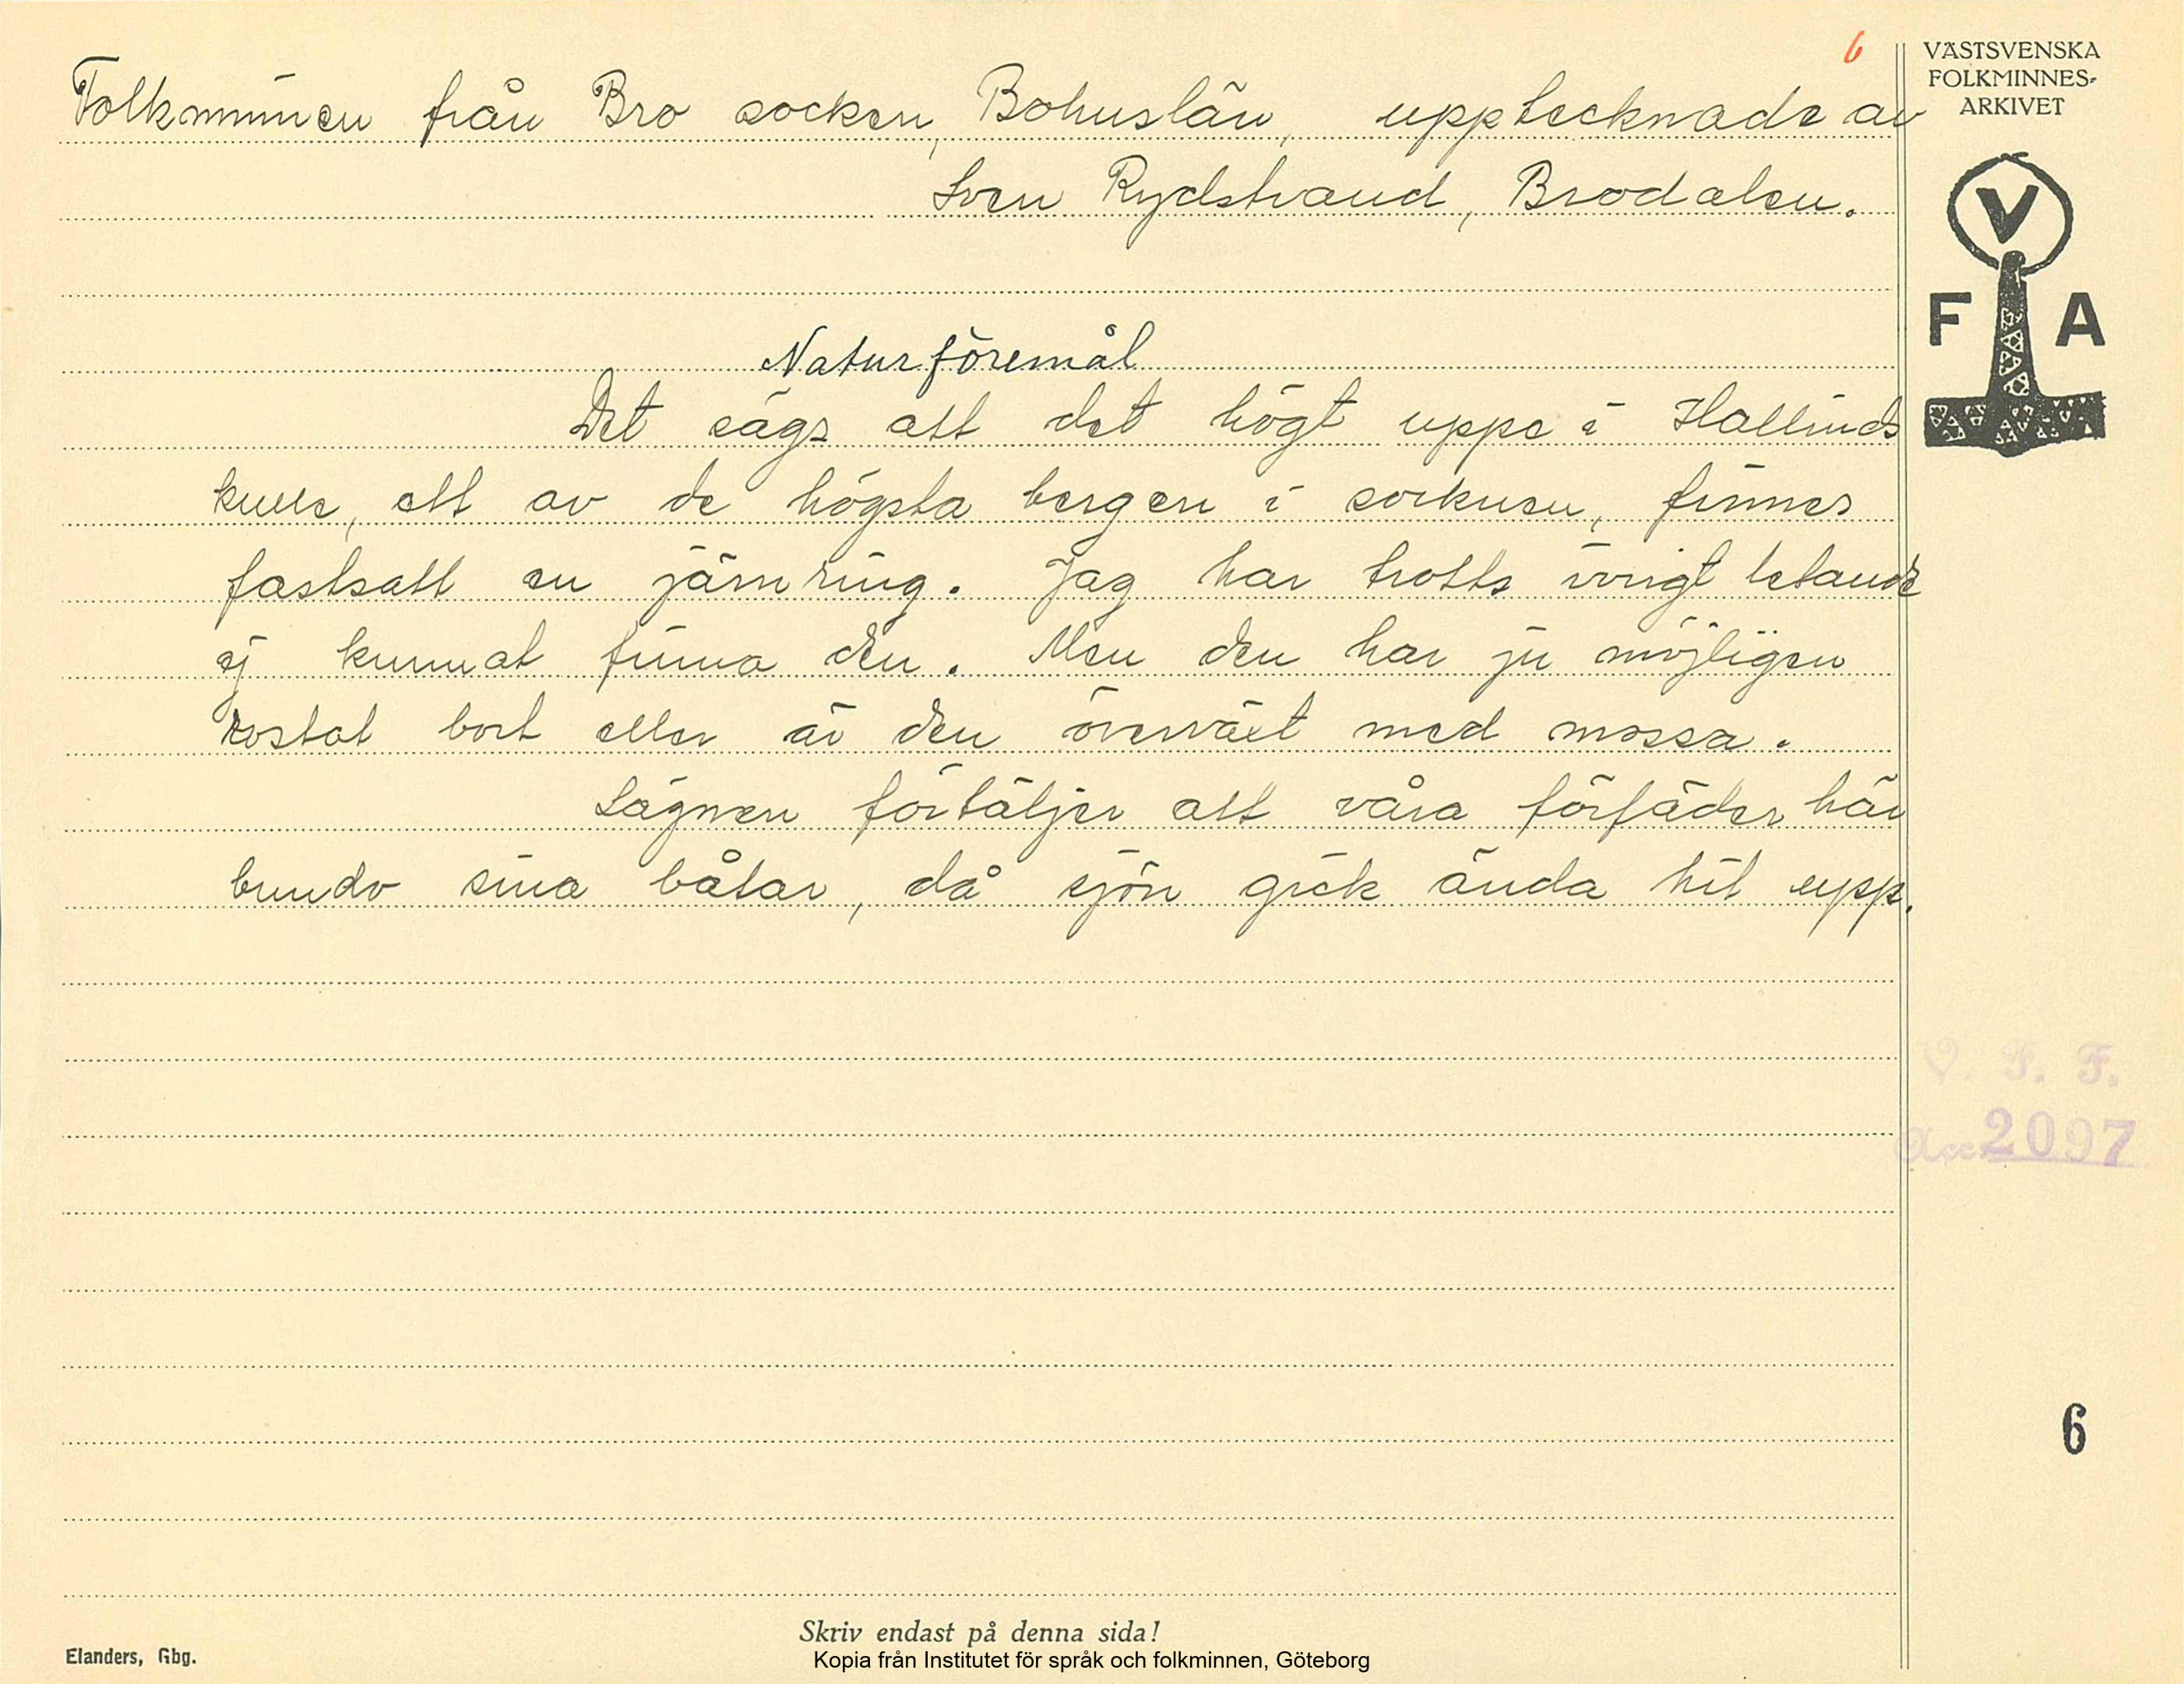 6
VÄSTSVENSKA
FOLKMINNES-
ARKIVET
Folkminnen från Bro socken, Bohuslän, upptecknade av
Sven Rydstrand, Brodalen.
V
F A
Naturföremål
Det sägs att det högt uppe i Hallinds
kulle, ett av de högsta bergen i socknen, finnes
fastsatt en järnring. Jag har trotts ivrigt letande
ej kunnat finna den. Men den har ju möjligen
rostat bort eller är den överväxt med mossa.
Sägnen förtäljer att våra förfäder här
bundo sina båtar, då sjön gick ända hit upp.
V. F. F.
Acc 2097
6
Skriv endast på denna sida!
Elanders, Gbg.
Kopia från Institutet för språk och folkminnen, Göteborg